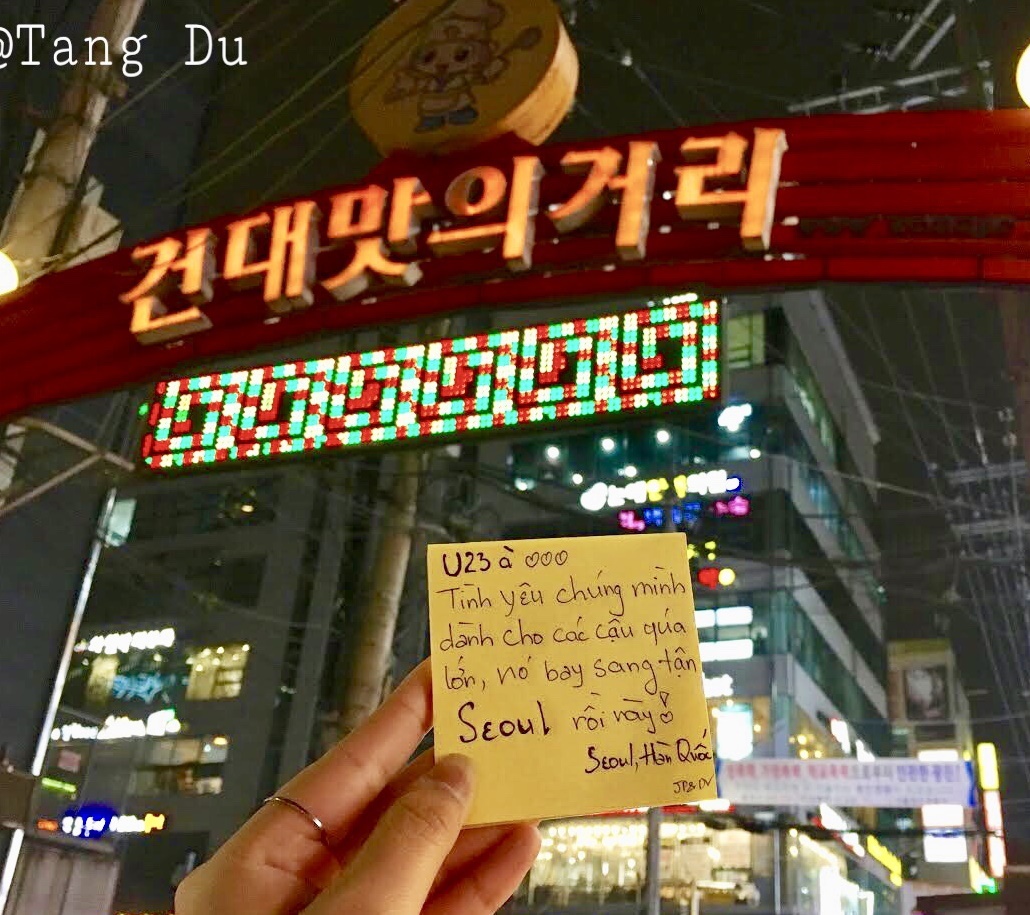 @Tang Du
건대맛의거리
U23 à ♡♡♡
Tình yêu chúng mình
dành cho các cậu qúa
lớn, nó bay sang tận
Seoul rồi này♡
Seoul, Hàn Quốc